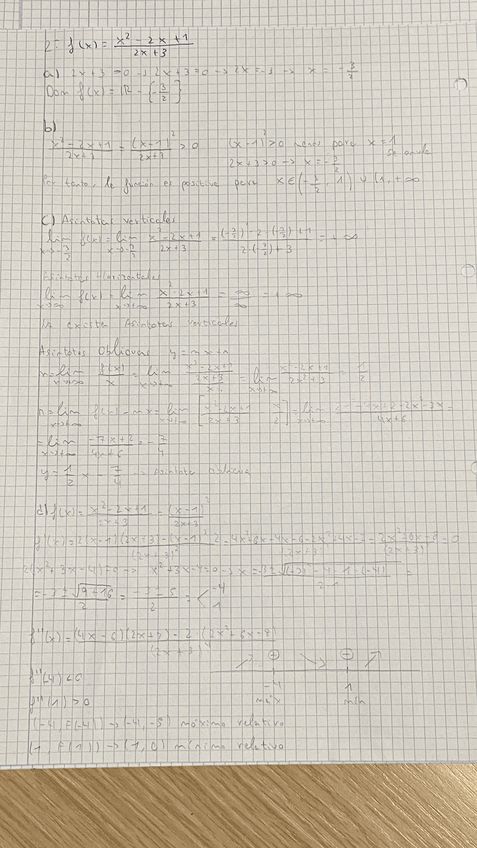 2- f(x) = x² - 2x + 1 / 2x + 3
a) 2x + 3 = 0 → 2x + 3 = 0 → 2x = -3 → x = -3/2
Dom f(x) = ℝ - {-3/2}
b)
x² - 2x + 1 / 2x + 3 = (x - 1)² / 2x + 3 > 0 (x - 1)² > 0 menos para x = 1 se anula
2x + 3 > 0 → x = -3/2
Por tanto, la función es positiva para x ∈ (-3/2, 1) ∪ (1, +∞
c) Asíntotas verticales
lim x→-3/2 f(x) = lim x→-3/2 x² - 2x + 1 / 2x + 3 = (-3/2)² - 2·(-3/2) + 1 / 2·(-3/2) + 3 = +∞
Asíntotas Horizontales
lim x→∞ f(x) = lim x→+∞ x² - 2x + 1 / 2x + 3 = ∞/∞ = +∞
existe Asíntotas verticales
Asíntotas Oblicuas y = mx + n
m = lim x→∞ f(x)/x = lim x→+∞ = lim x→+∞ = 1/2
n = lim x→∞ f(x) - mx = lim x→+∞ [x² - 2x + 1 / 2x + 3 - x/2] = lim x→+∞ 4x + 6 =
= lim x→+∞ -7x + 2 / 4x + 6 = -7/4
y = 1/2 x - 7/4 → Asíntota oblicua
d) f(x) = x² - 2x + 1 / 2x + 3 = (x - 1)² / 2x + 3
f'(x) = 2(x - 1)(2x + 3) - (x - 1)²·2 / (2x + 3)² = 4x² + 6x - 4x - 6 - 2x² + 4x - 2 / (2x + 3)² = 2x² + 6x - 8 / (2x + 3)² = 0
2(x² + 3x - 4) = 0 → x² + 3x - 4 = 0 → x = -3 ± √(+3)² - 4·1·(-4) / 2·1 =
= -3 ± √9 + 16 / 2 = -3 ± 5 / 2 = < -4
1
f''(x) = (4x - 6)(2x + 3) - 2·(2x² + 6x - 8) / (2x + 3)⁴
f''(-4) < 0
f''(1) > 0
+ -
-4 1
máx mín
(-4, F(-4)) → (-4, -5) máximo relativo
(1, F(1)) → (1, 0) mínimo relativo